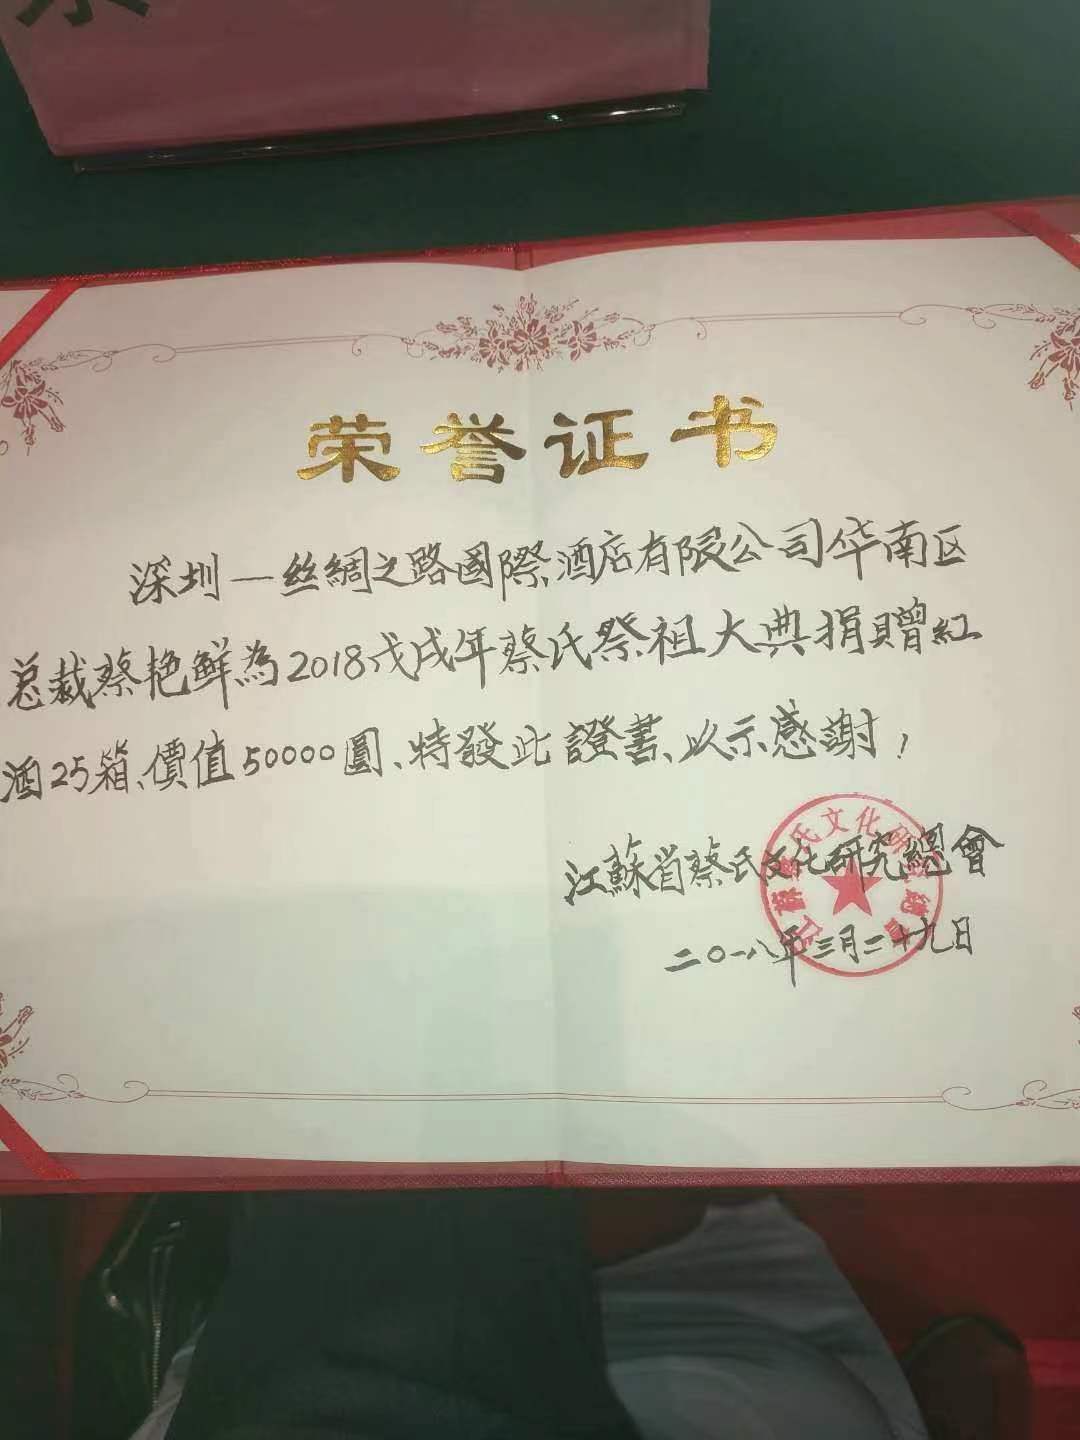 荣誉证书
深圳一丝綢之路國際酒店有限公司华南区
总裁蔡艳鲜為2018戊戌年蔡氏祭祖大典捐贈紅
酒25箱、價值50000圓、特發此證書、以示感謝！
江蘇省蔡氏文化研究總會
二〇一八年三月二十九日
江蘇蔡氏文化研究總會